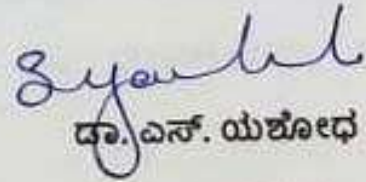 ಡಾ. ಎಸ್. ಯಶೋಧ